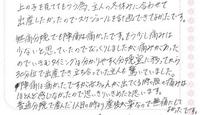 上の子を見てもらう為、主人の夏休みに合わせて
出産したかったのでスケジュールを組めてできたのがよかったです。
無痛分娩でも陣痛は痛かったです。もう少し痛みは
少ないと思っていたのでなめてました。が痛みがあった
のでいきむタイミングは分かりやすく分娩室に移ってから
30分ほどで出産でき立ち合っていた主人も驚いていました。
陣痛は痛かったですがお産なんが出てくる際の痛みは
ほとんど感じなかったので思いきりいきめたと思います。
普通分娩で産んだ1人目の時より産後が楽なので無痛にして
よかったです。